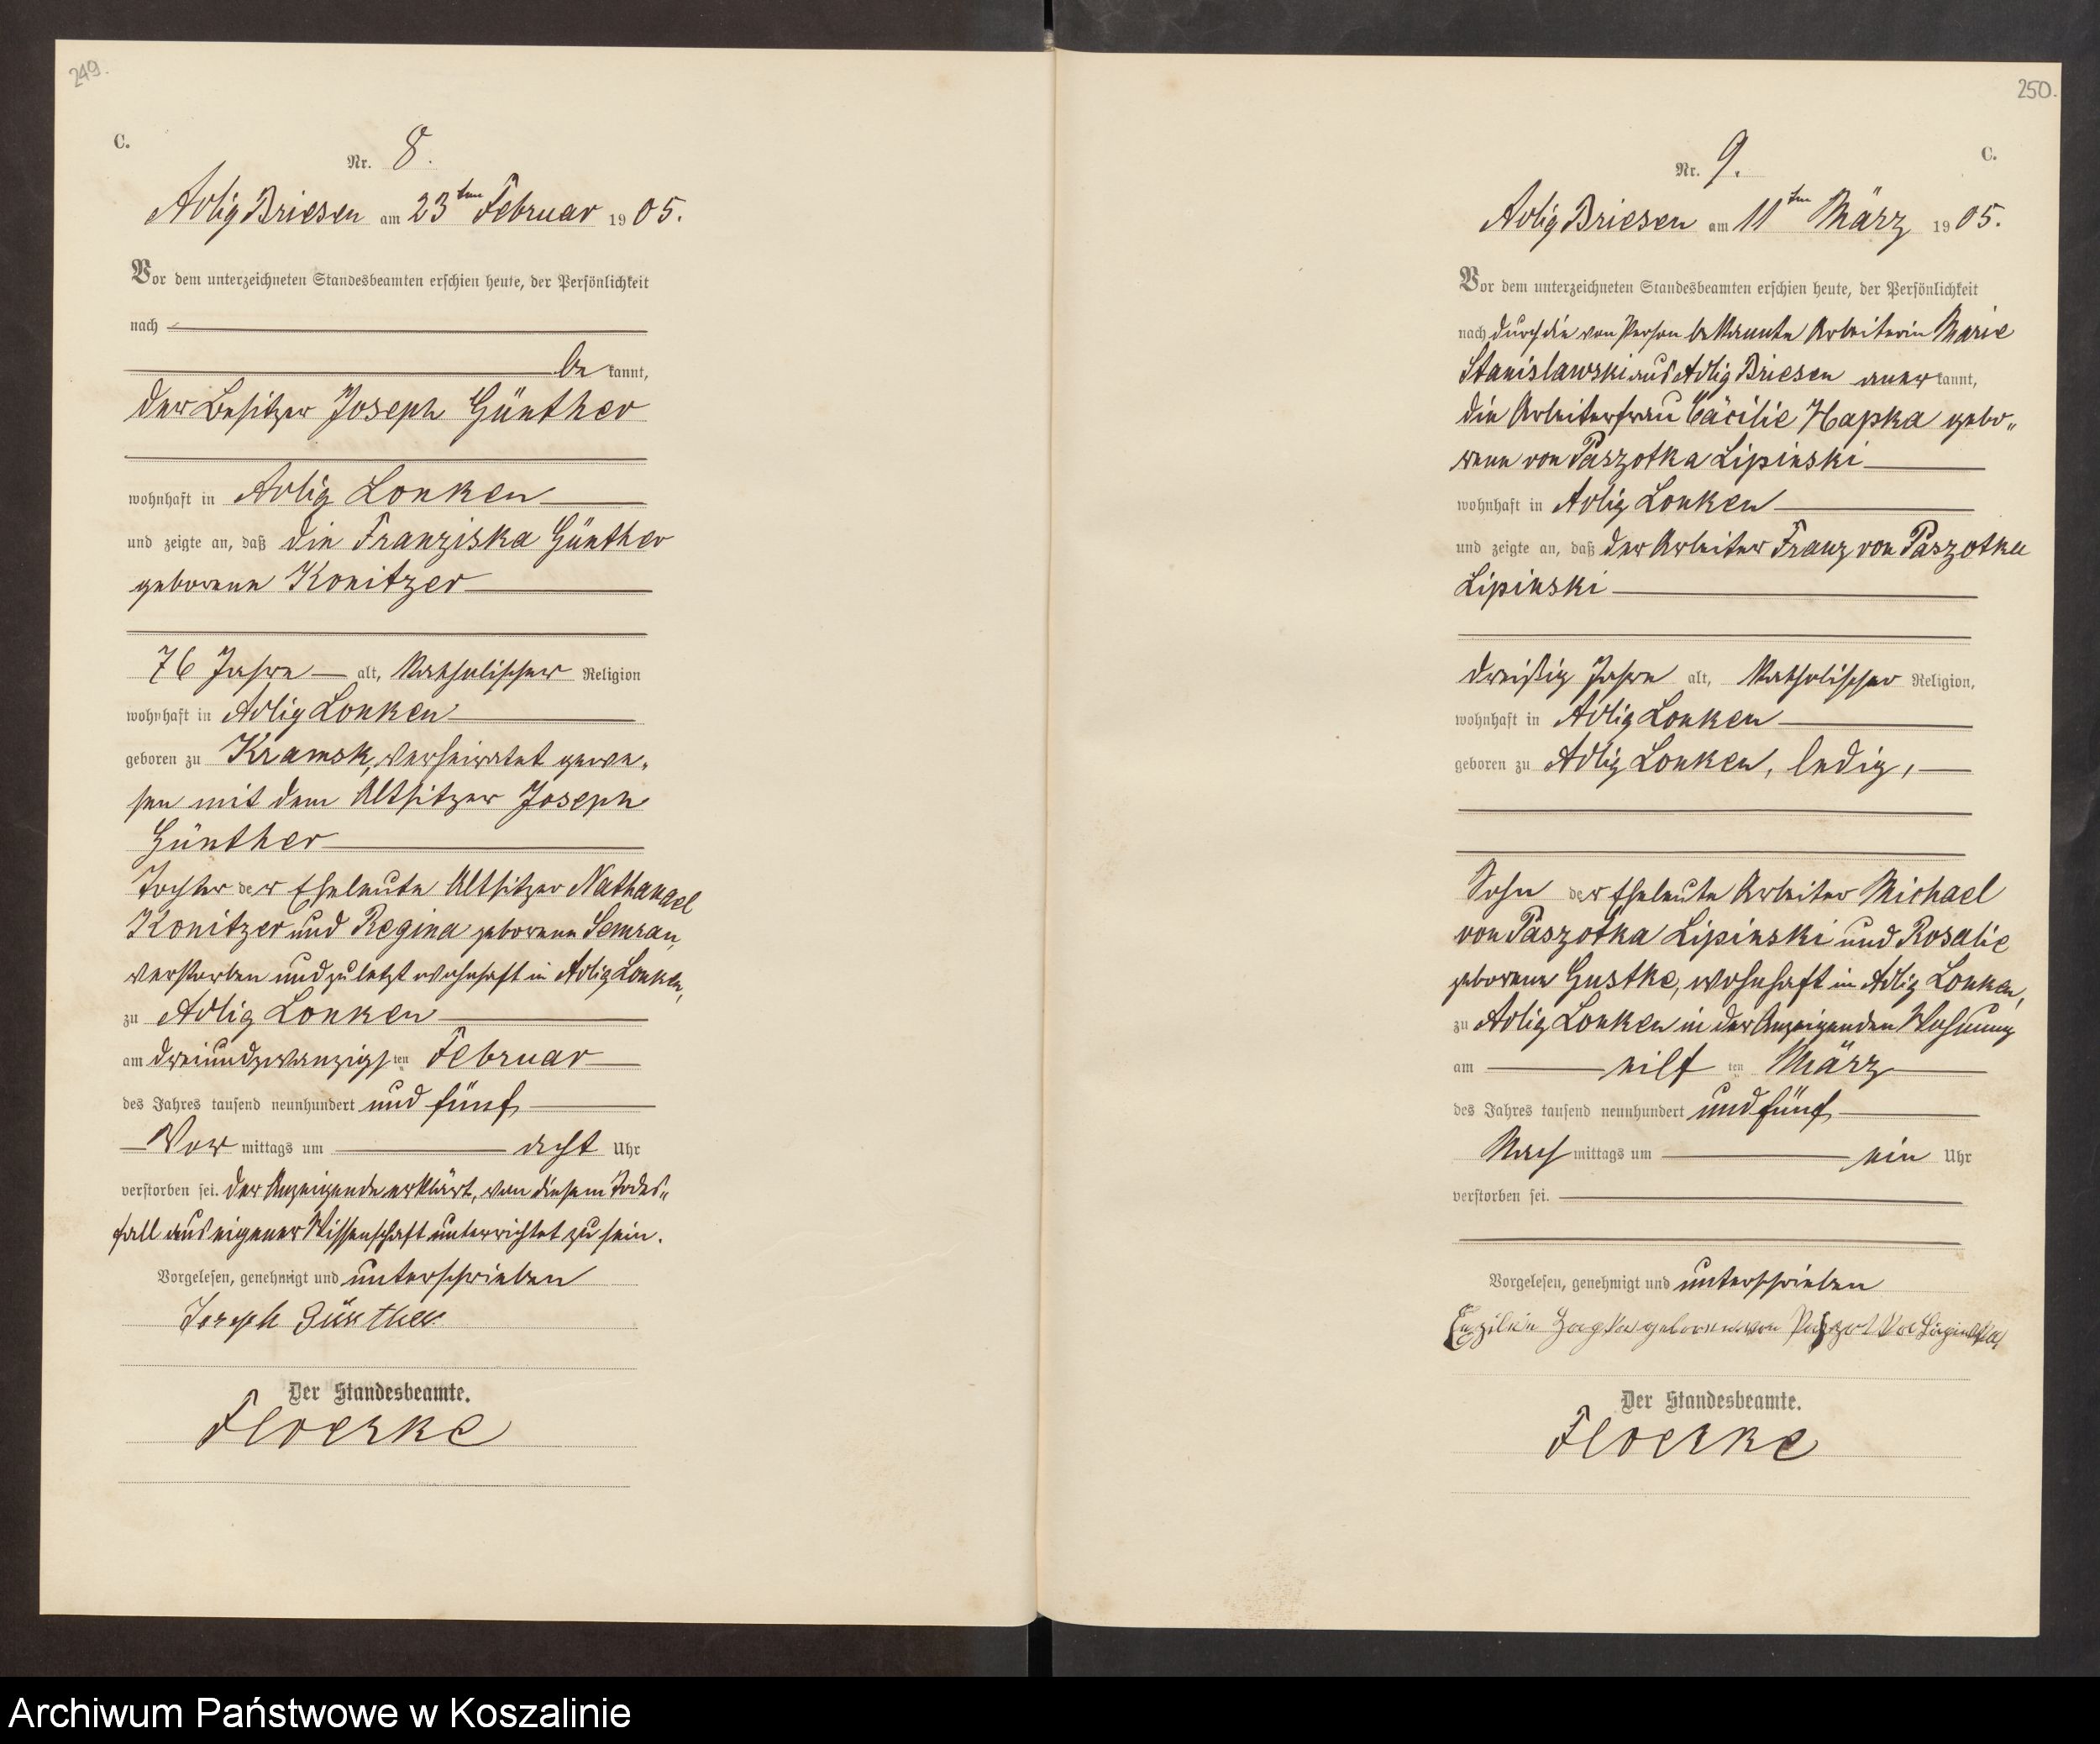 249.
C.
Nr. 8.
Adlig Briesen am 23ten Februar 1905.
Vor dem unterzeichneten Standesbeamten erschien heute, der Persönlichkeit
nach
be kannt,
der Besitzer Joseph Günther
wohnhaft in Adlig Lonken
und zeigte an, daß die Franziska Günther
geborene Konitzer
76 Jahre alt, katholischer Religion
wohnhaft in Adlig Lonken
geboren zu Kramsk, verheiratet gewe-
sen mit dem Altsitzer Joseph
Günther
Tochter der Eheleute Altsitzer Nathanael
Konitzer und Regina geborene Semrau,
verstorben und zuletzt wohnhaft in Adlig Lonken,
zu Adlig Lonken
am dreiundzwanzigsten Februar
des Jahres tausend neunhundert und fünf
Vor mittags um acht Uhr
verstorben sei. Der Anzeigende erklärt, von diesem Todes-
fall aus eigener Wissenschaft unterrichtet zu sein.
Vorgelesen, genehmigt und unterschrieben
Joseph Günther
Der Standesbeamte.
Floerke
250.
C.
Nr. 9.
Adlig Briesen am 11ten März 1905.
Vor dem unterzeichneten Standesbeamten erschien heute, der Persönlichkeit
nach durch die von Person bekannte Arbeiterin Marie
Stanislawski aus Adlig Briesen aner kannt,
die Arbeiterfrau Cäcilie Hapka gebo-
rene von Paszotka Lipinski
wohnhaft in Adlig Lonken
und zeigte an, daß der Arbeiter Franz von Paszotka
Lipinski
dreißig Jahre alt, katholischer Religion,
wohnhaft in Adlig Lonken
geboren zu Adlig Lonken, ledig,
Sohn der Eheleute Arbeiter Michael
von Paszotka Lipinski und Rosalie
geborene Gustke, wohnhaft in Adlig Lonken,
zu Adlig Lonken in der Anzeigenden Wohnung
am eilf ten März
des Jahres tausend neunhundert und fünf
Nach mittags um ein Uhr
verstorben sei.
Vorgelesen, genehmigt und unterschrieben
geborene von
Der Standesbeamte.
Floerke
Archiwum Państwowe w Koszalinie